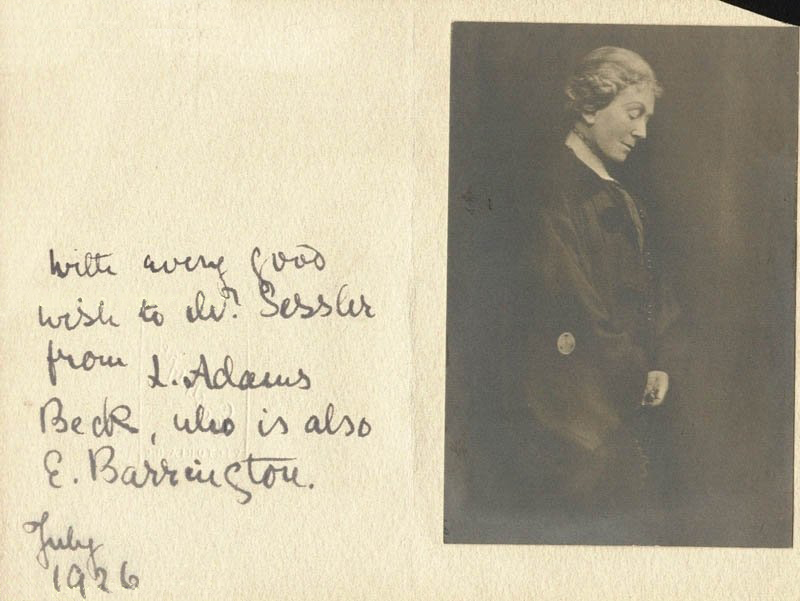 With every good
wish to Mr. Sessler
from L. Adams
Beck, who is also
E. Barrington.
July
1926